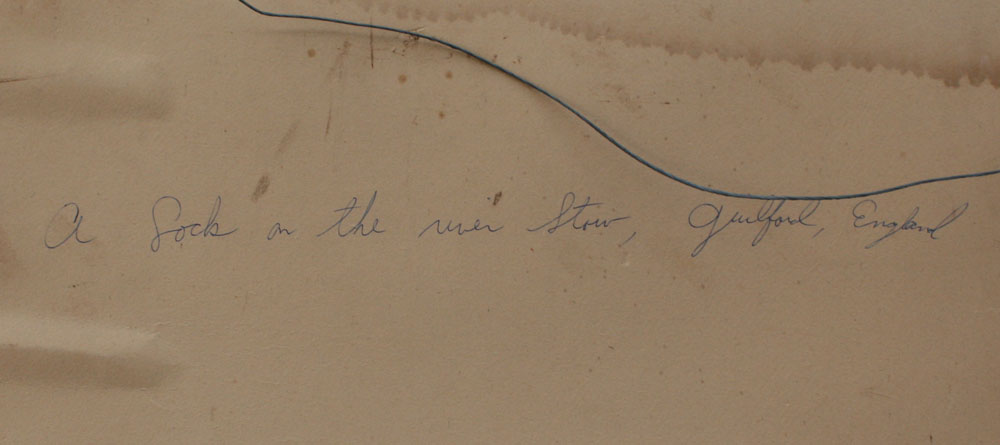 A Lock on the river Stow, Guilford, England